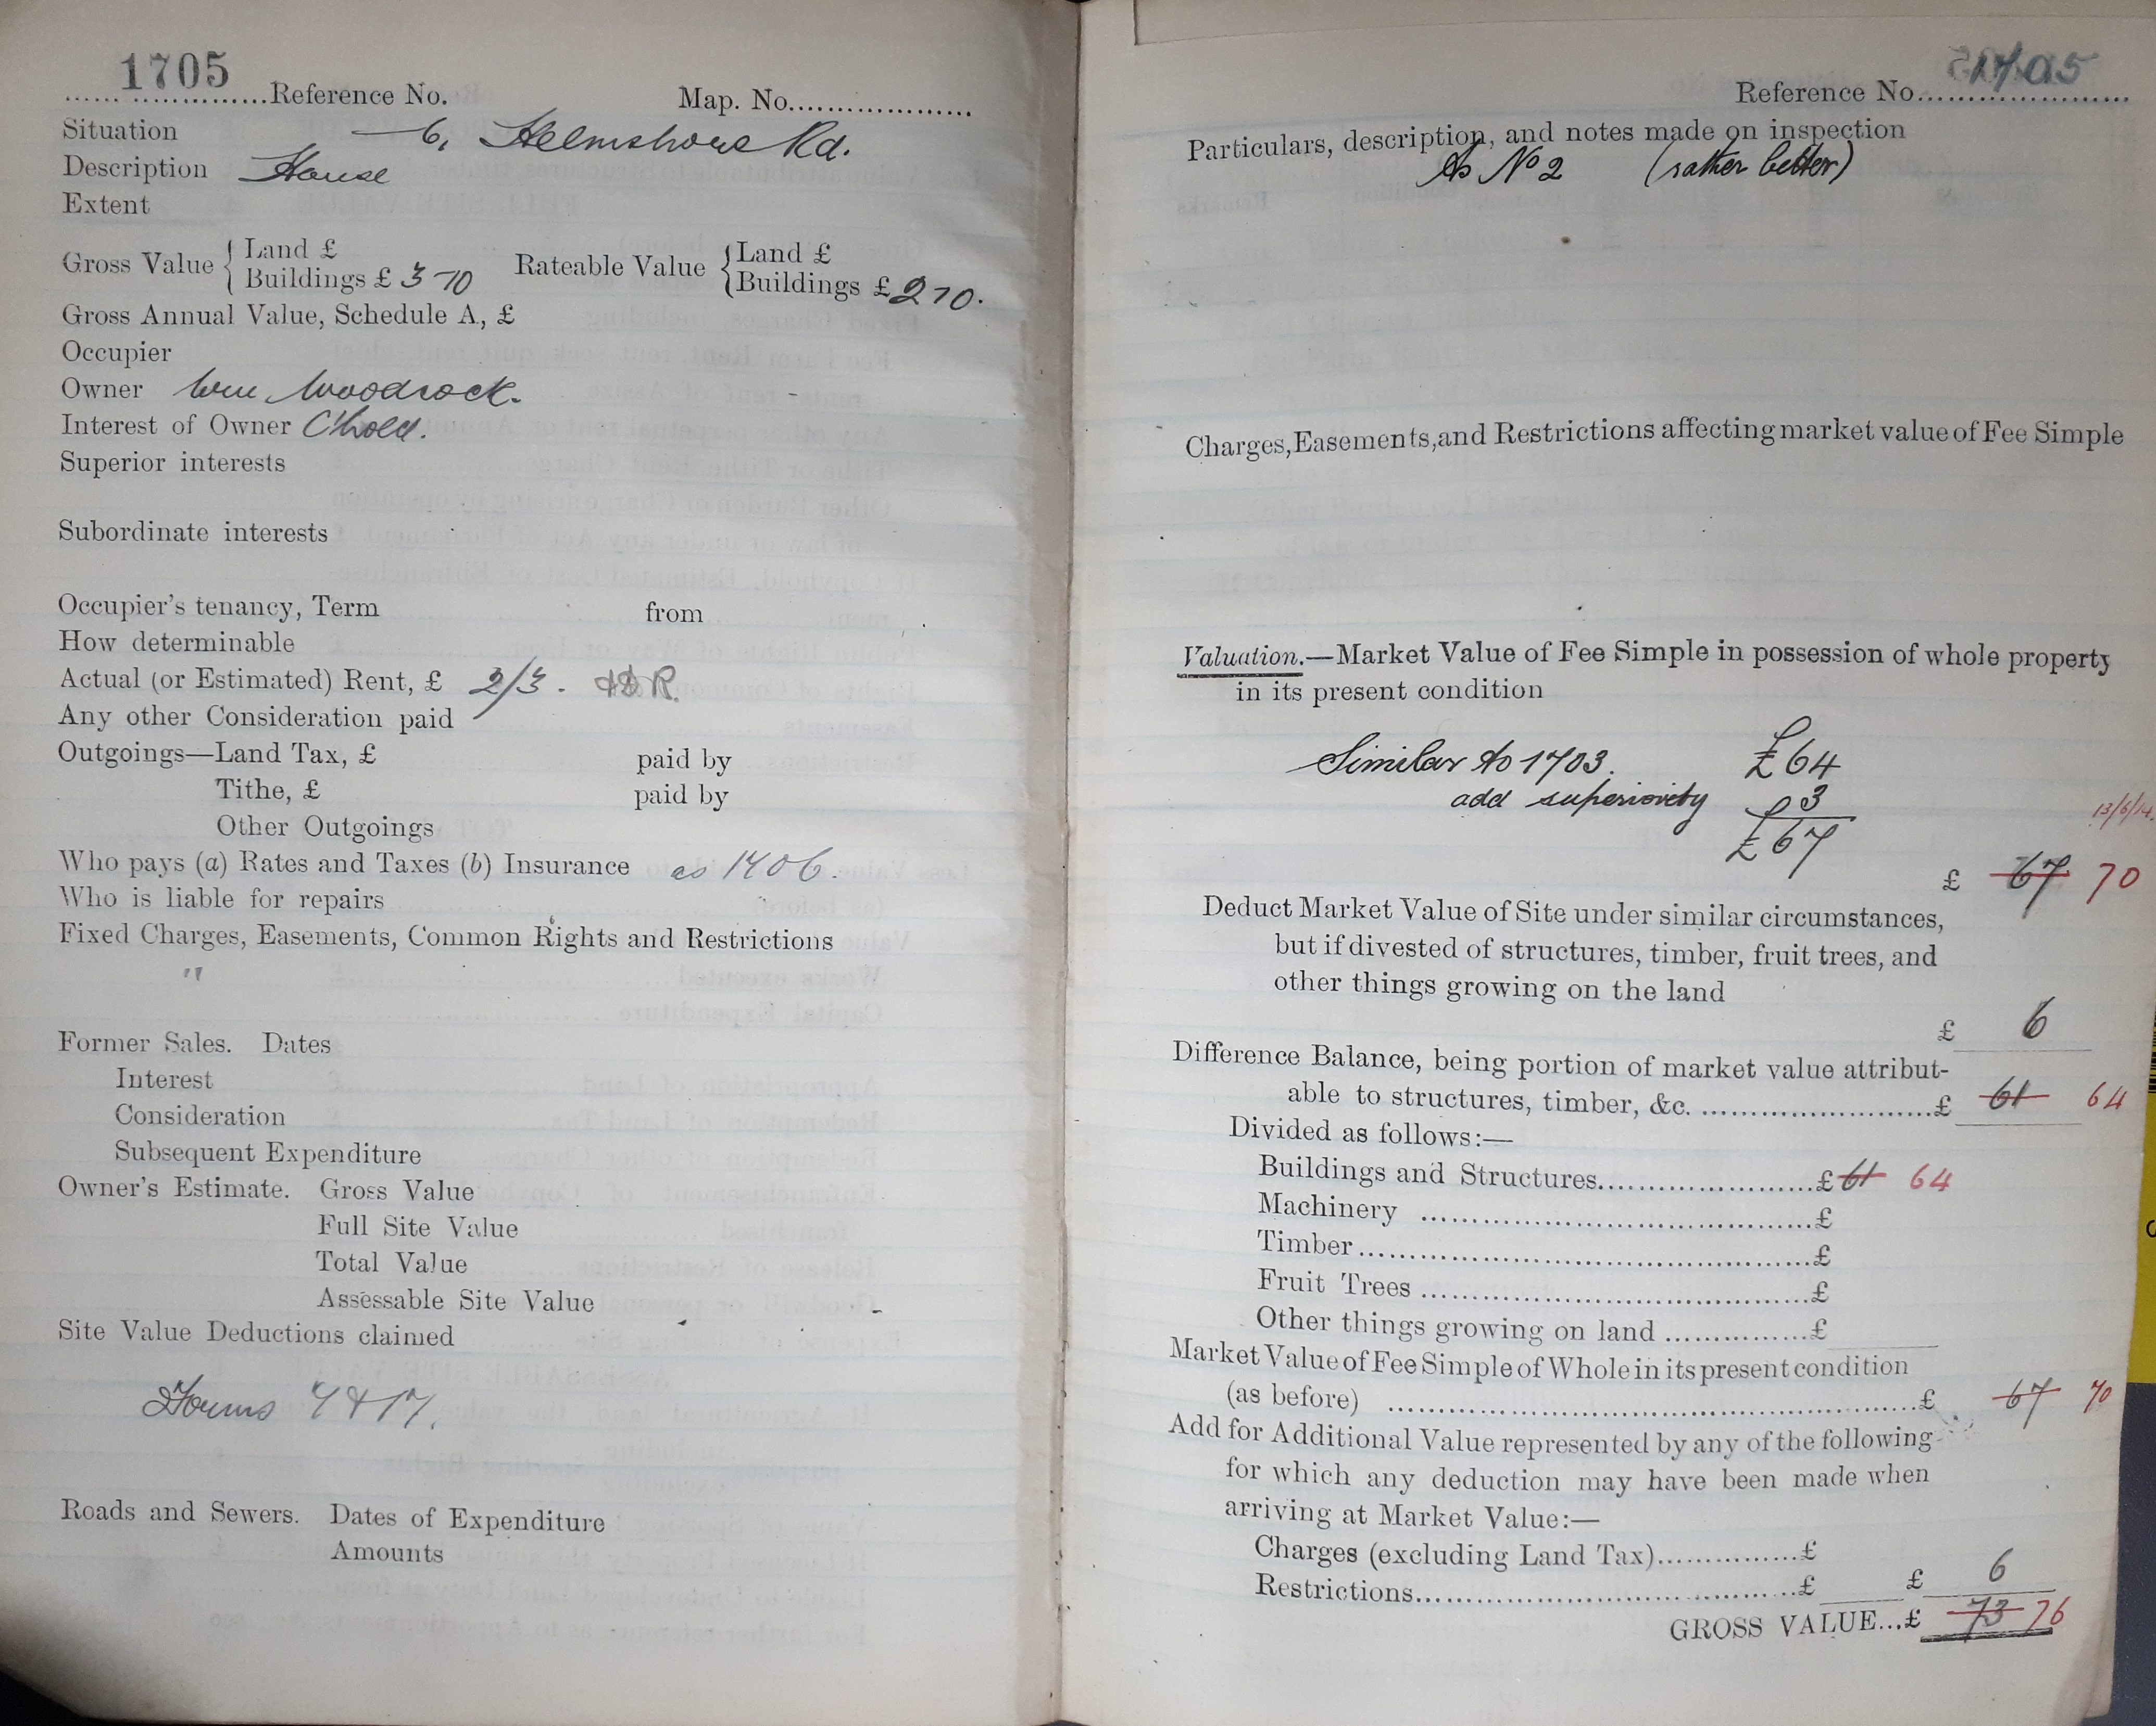 1705
Reference No. Map. No.
Situation 6, Helmshore Rd.
Description House
Extent
Gross Value { Land £
Buildings £ 3 - 10
Rateable Value { Land £
Buildings £ 2 10.
Gross Annual Value, Schedule A, £
Occupier
Owner Wm Woodrock.
Interest of Owner C'hold.
Superior interests
Subordinate interests
Occupier's tenancy, Term from
How determinable
Actual (or Estimated) Rent, £ 2/3.
Any other Consideration paid
Outgoings—Land Tax, £ paid by
Tithe, £ paid by
Other Outgoings
Who pays (a) Rates and Taxes (b) Insurance as 1406.
Who is liable for repairs
Fixed Charges, Easements, Common Rights and Restrictions
"
Former Sales. Dates
Interest
Consideration
Subsequent Expenditure
Owner's Estimate. Gross Value
Full Site Value
Total Value
Assessable Site Value
Site Value Deductions claimed
Forms 7 & 17.
Roads and Sewers. Dates of Expenditure
Amounts
Reference No. 1705
Particulars, description, and notes made on inspection
As No 2 (rather better)
Charges, Easements, and Restrictions affecting market value of Fee Simple
Valuation.—Market Value of Fee Simple in possession of whole property
in its present condition
Similar to 1703. £64
add superiority 3
£67
13/6/14.
£ 67 70
Deduct Market Value of Site under similar circumstances,
but if divested of structures, timber, fruit trees, and
other things growing on the land
£ 6
Difference Balance, being portion of market value attribut-
able to structures, timber, &c. £ 61 64
Divided as follows:—
Buildings and Structures £ 61 64
Machinery £
Timber £
Fruit Trees £
Other things growing on land £
Market Value of Fee Simple of Whole in its present condition
(as before) £ 67 70
Add for Additional Value represented by any of the following
for which any deduction may have been made when
arriving at Market Value:—
Charges (excluding Land Tax) £
Restrictions £ £ 6
GROSS VALUE...£ 73 76